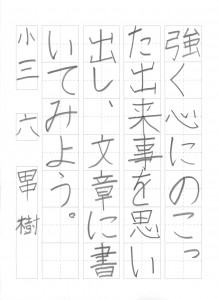 強く心にのこっ
た出来事を思い
出し、文章に書
いてみよう。
小三 六 田中樹